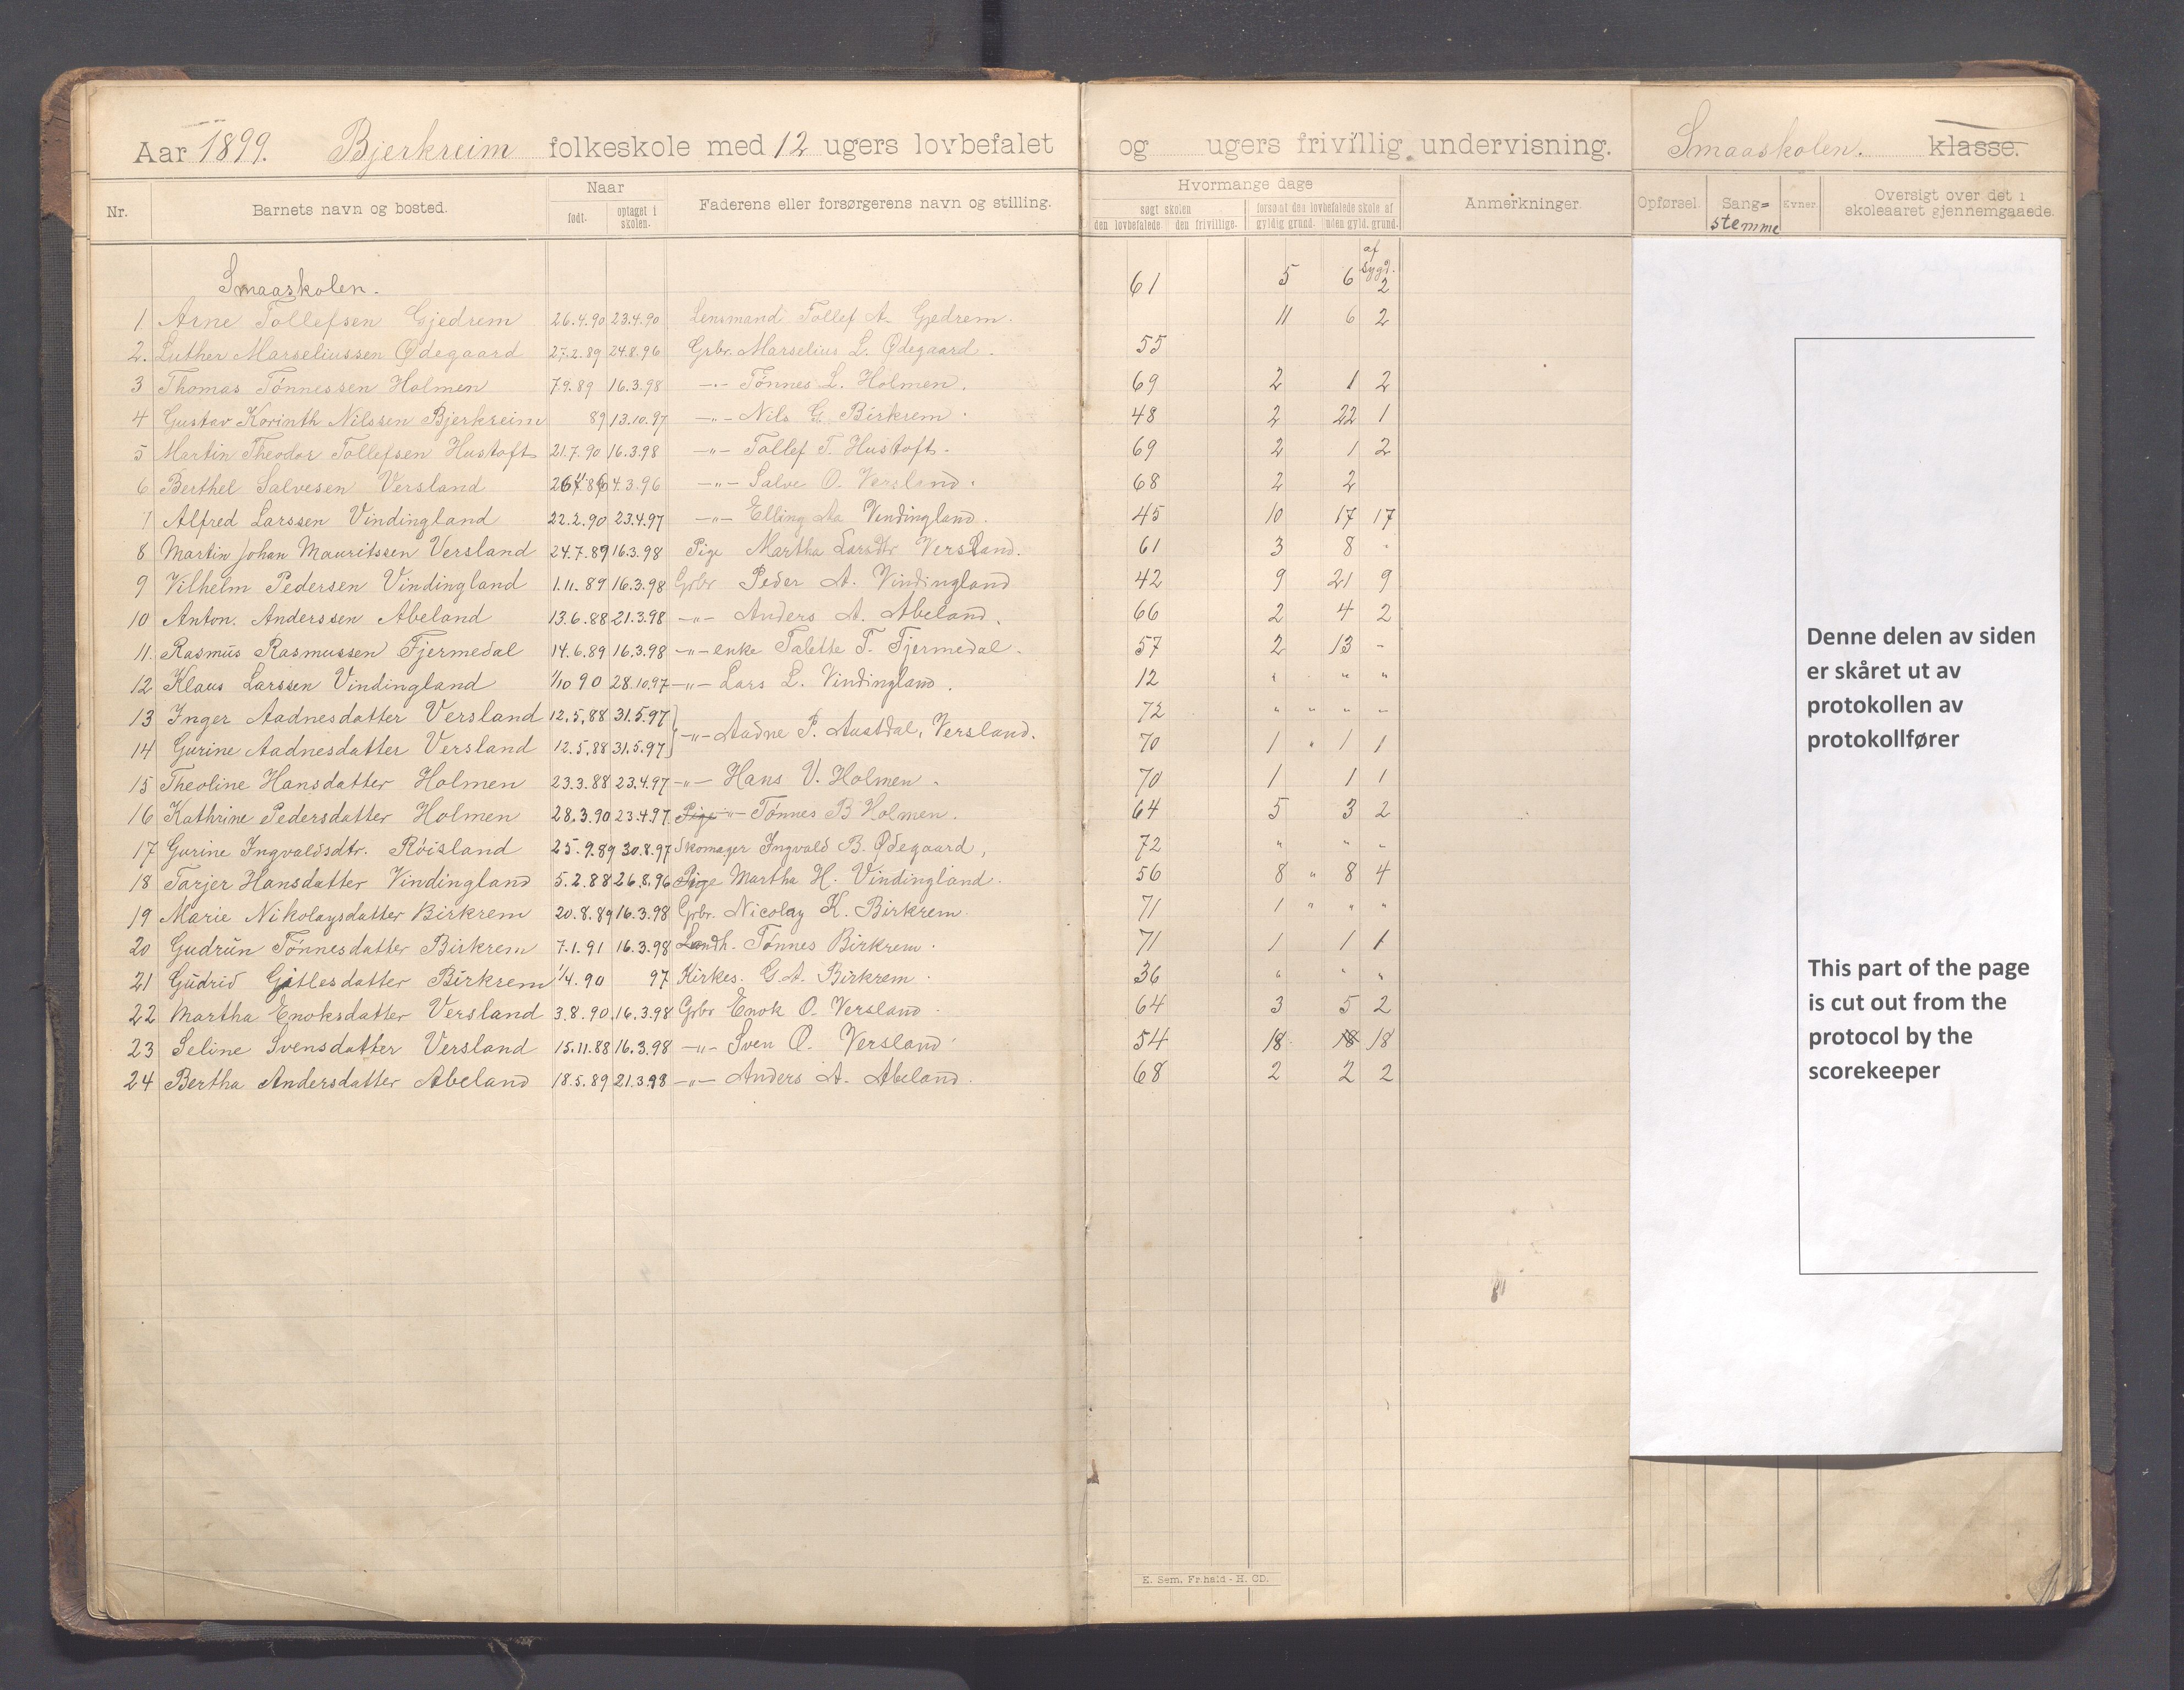 Aar 1899. Bjerkreim folkeskole med 12 ugers lovbefalet og ugers frivillig undervisning. Smaaskolen. klasse.
Nr. Barnets navn og bosted. Naar født. optaget i skolen. Faderens eller forsørgerens navn og stilling. Hvormange dage søgt skolen den lovbefalede den frivillige. forsømt den lovbefalede skole af gyldig grund. uden gyld. grund. Anmerkninger. Opførsel. Sang=stemme Evner. Oversigt over det i skoleaaret gjennemgaaede.
af sygd.
Smaaskolen. 61 5 6 2
1 Arne Tollefsen Gjedrem 26.4.90 23.4.90 Lensmand Tollef A. Gjedrem. 11 6 2
2. Luther Marseliussen Ødegaard 27.2.89 24.8.96 Grbr. Marselius L. Ødegaard. 55
3 Thomas Tönnessen Holmen 7.9.89 16.3.98 -"- Tönnes L. Holmen. 69 2 1 2
4 Gustav Korinth Nilssen Bjerkreim 89 13.10.97 -"- Nils G. Birkrem. 48 2 22 1
5 Martin Theodor Tollefsen Hustoft 21.7.90 16.3.98 -"- Tollef T. Hustoft. 69 2 1 2
6 Berthel Salvesen Versland 4.3.96 -"- Salve O. Versland. 68 2 2
7 Alfred Larssen Vindingland 22.2.90 23.4.97 -"- Elling Aa Vindingland. 45 10 17 17
8 Martin Johan Mauritssen Versland 24.7.89 16.3.98 Pige Martha Larsdtr Versland. 61 3 8 "
9 Vilhelm Pedersen Vindingland 1.11.89 16.3.98 Grbr Peder A. Vindingland 42 9 21 9
10 Anton. Anderssen Abeland 13.6.88 21.3.98 -"- Anders A. Abeland. 66 2 4 2
11. Rasmus Rasmussen Fjermedal 14.6.89 16.3.98 -"- enke Talette T. Fjermedal. 57 2 13 -
12 Klaus Larssen Vindingland 1/10 90 28.10.97 -"- Lars L. Vindingland. 12 " " "
13 Inger Aadnesdatter Versland 12.5.88 31.5.97 -"- Aadne P. Austdal, Versland. 72 " " " "
14 Gurine Aadnesdatter Versland 12.5.88 31.5.97 70 1 " 1 1
15 Theoline Hansdatter Holmen 23.3.88 23.4.97 -"- Hans V. Holmen. 70 1 1 1
16 Kathrine Pedersdatter Holmen 28.3.90 23.4.97 Pige -"- Tönnes B Holmen. 64 5 3 2
17 Gurine Ingvaldsdtr. Röisland 25.9.89 30.8.97 Skomager Ingvald B. Ødegaard, 72 " " "
18 Tarjer Hansdatter Vindingland 5.2.88 26.8.96 Pige Martha H. Vindingland. 56 8 " 8 4
19 Marie Nikolaysdatter Birkrem 20.8.89 16.3.98 Grbr. Nicolay K. Birkrem. 71 1 " " "
20 Gudrun Tönnesdatter Birkrem 7.1.91 16.3.98 Landh. Tönnes Birkrem. 71 1 1 1
21 Gudrid Gitlesdatter Birkrem 1/4.90 97 Kirkes. G.A. Birkrem. 36 " " "
22 Martha Enoksdatter Versland 3.8.90. 16.3.98 Grbr Enok O. Versland. 64 3 5 2
23 Seline Svensdatter Versland 15.11.88 16.3.98 -"- Sven O. Versland 54 18 18 18
24 Bertha Andersdatter Abeland 18.5.89 21.3.98 -"- Anders A. Abeland. 68 2 2 2
Denne delen av siden
er skåret ut av
protokollen av
protokollfører
This part of the page
is cut out from the
protocol by the
scorekeeper
E. Sem, Fr.hald - H. CD.